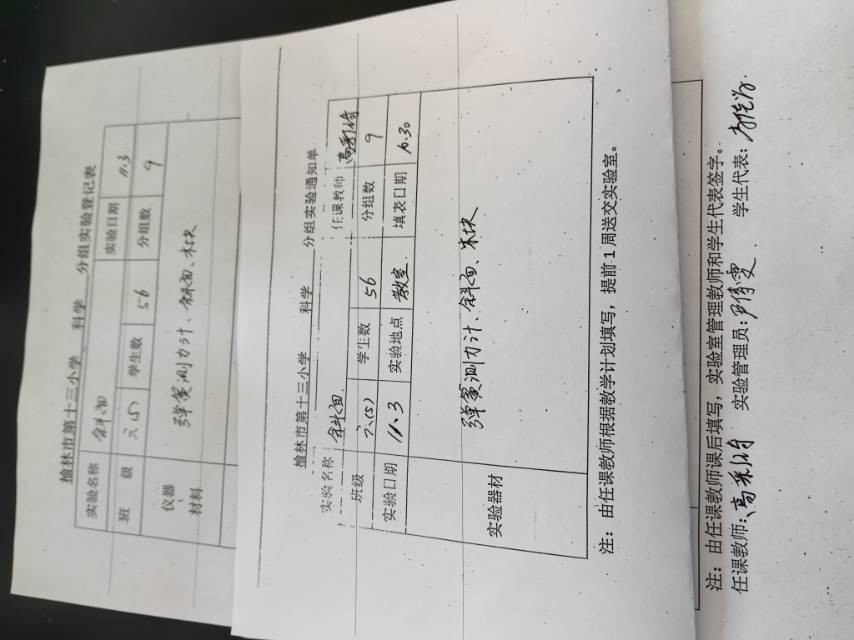 榆林市第十三小学 科学 分组实验登记表
实验名称 斜面 实验日期 11.3
班 级 六(5) 学生数 56 分组数 9
仪器材料 弹簧测力计、斜面、木块
榆林市第十三小学 科学 分组实验通知单
实验名称 斜面 任课教师 高利
班级 六(5) 学生数 56 分组数 9
实验日期 11.3 实验地点 教室 填表日期 10.30
实验器材 弹簧测力计、斜面、木块
注：由任课教师根据教学计划填写，提前1周送交实验室。
注：由任课教师课后填写，实验室管理教师和学生代表签字。
任课教师：高利 实验管理员：雯 学生代表：